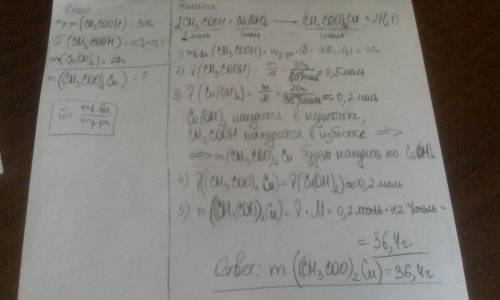 Дано:
m р-ра (CH₃COOH) =
ω (CH₃COOH) =
m (Cu(OH)₂) = 20г
m (CH₃COO)₂Cu = ?
ω = m в-ва / m р-ра
Решение
2CH₃COOH + Cu(OH)₂ → (CH₃COO)₂Cu + 2H₂O
2 моль 1 моль 1 моль
1) m в-ва (CH₃COOH) = m р-ра · ω =
2) ν (CH₃COOH) = m/M = ≈ 0,5 моль
3) ν (Cu(OH)₂) = m/M = ≈ 0,2 моль
Cu(OH)₂ находится в недостатке,
CH₃COOH находится в избытке ⟹
⟹ m(CH₃COO)₂Cu будем находить по Cu(OH)₂
4) ν((CH₃COO)₂Cu) = ν(Cu(OH)₂) ≈ 0,2 моль
5) m((CH₃COO)₂Cu) = ν · M = 0,2 моль ·
= 36,4г
Ответ: m (CH₃COO)₂Cu) = 36,4г